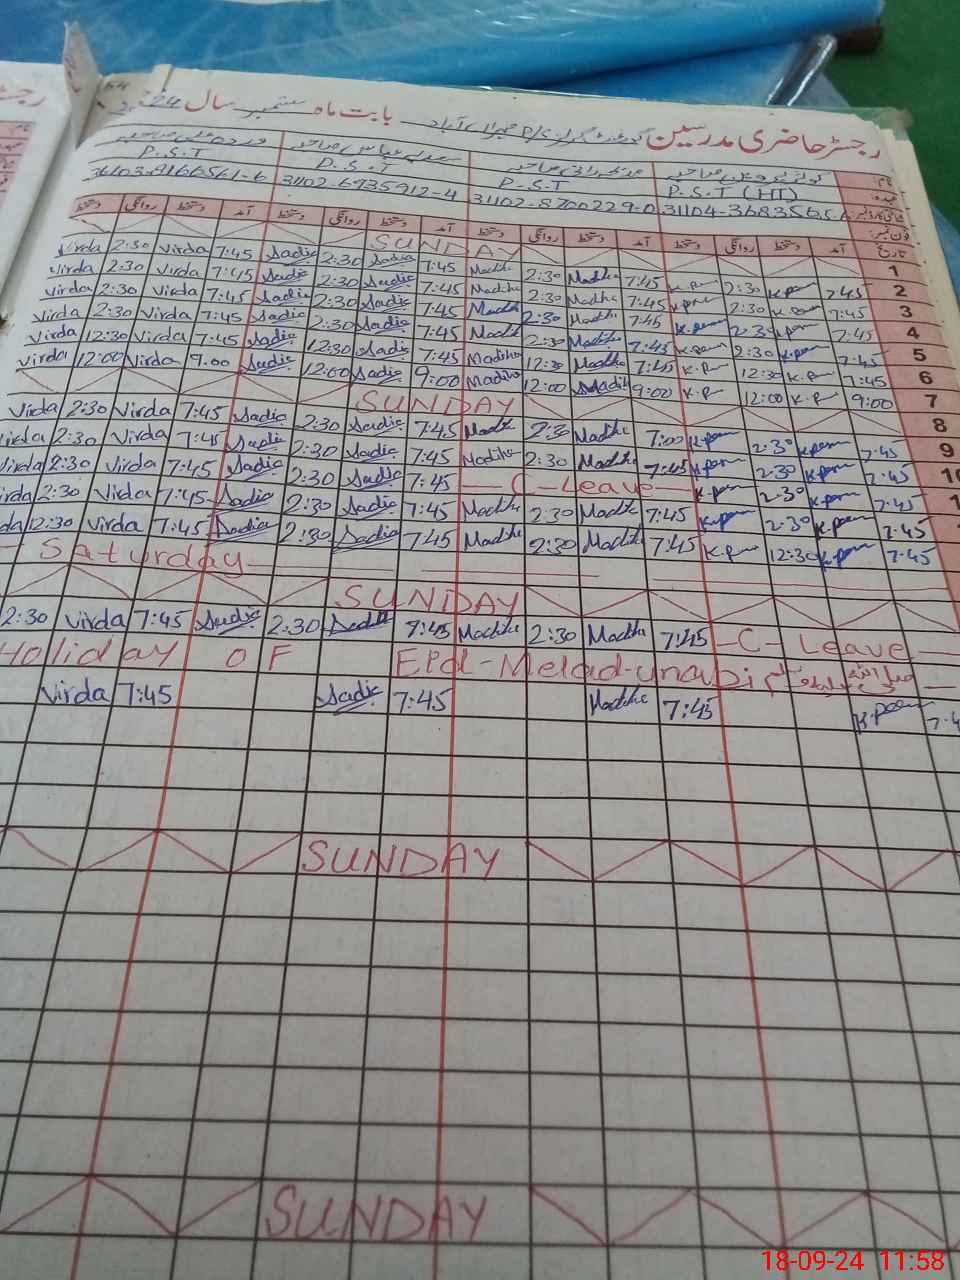 رجسٹر حاضری مدرسین گورنمنٹ گرلز P/S مہراں آباد بابت ماہ ستمبر سال 24
P.S.T P.S.T P.S.T P.S.T (HT)
36103-8166561-6 31102-6935912-4 31102-8700229-0 31104-368356
دستخط روانگی دستخط آمد دستخط روانگی دستخط آمد دستخط روانگی دستخط آمد دستخط روانگی دستخط آمد تاریخ
SUNDAY 1
Virda 2:30 Virda 7:45 Sadie 2:30 Sadia 7:45 Madiha 2:30 Madiha 7:45 K.pem 2:30 K.pem 7:45 2
Virda 2:30 Virda 7:45 Sadie 2:30 Sadie 7:45 Madiha 2:30 Madiha 7:45 K.pem 2:30 K.pem 7:45 3
Virda 2:30 Virda 7:45 Sadie 2:30 Sadie 7:45 Madiha 2:30 Madiha 7:45 K.pem 2:30 K.pem 7:45 4
Virda 2:30 Virda 7:45 Sadie 2:30 Sadie 7:45 Madiha 2:30 Madiha 7:45 K.pem 2:30 K.pem 7:45 5
Virda 12:30 Virda 7:45 Sadie 12:30 Sadie 7:45 Madiha 12:30 Madiha 7:45 K.p 12:30 K.pem 7:45 6
Virda 12:00 Virda 9:00 Sadie 12:00 Sadie 9:00 Madiha 12:00 Madiha 9:00 K.p 12:00 K.p 9:00 7
SUNDAY 8
Virda 2:30 Virda 7:45 Sadie 2:30 Sadie 7:45 Madiha 2:30 Madiha 7:00 K.pem 2:30 K.pem 7:45 9
Virda 2:30 Virda 7:45 Sadie 2:30 Sadie 7:45 Madiha 2:30 Madiha 7:45 K.pem 2:30 K.pem 7:45 10
Virda 2:30 Virda 7:45 Sadie 2:30 Sadie 7:45 — C-Leave — K.pem 2:30 K.pem 7:45 1
irda 2:30 Virda 7:45 Sadia 2:30 Sadie 7:45 Madiha 2:30 Madiha 7:45 K.pem 2:30 K.pem 7:45 1
da 12:30 Virda 7:45 Sadia 2:30 Sadia 7:45 Madiha 2:30 Madiha 7:45 K.pem 12:30 K.pem 7:45
Saturday
SUNDAY
2:30 Virda 7:45 Sadie 2:30 Sadie 7:45 Madiha 2:30 Madiha 7:45 — C- Leave —
Holiday OF Eid-Melad-unabi صلى الله عليه وسلم
Virda 7:45 Sadie 7:45 Madiha 7:45 K.pem 7:4
SUNDAY
SUNDAY
18-09-24 11:58